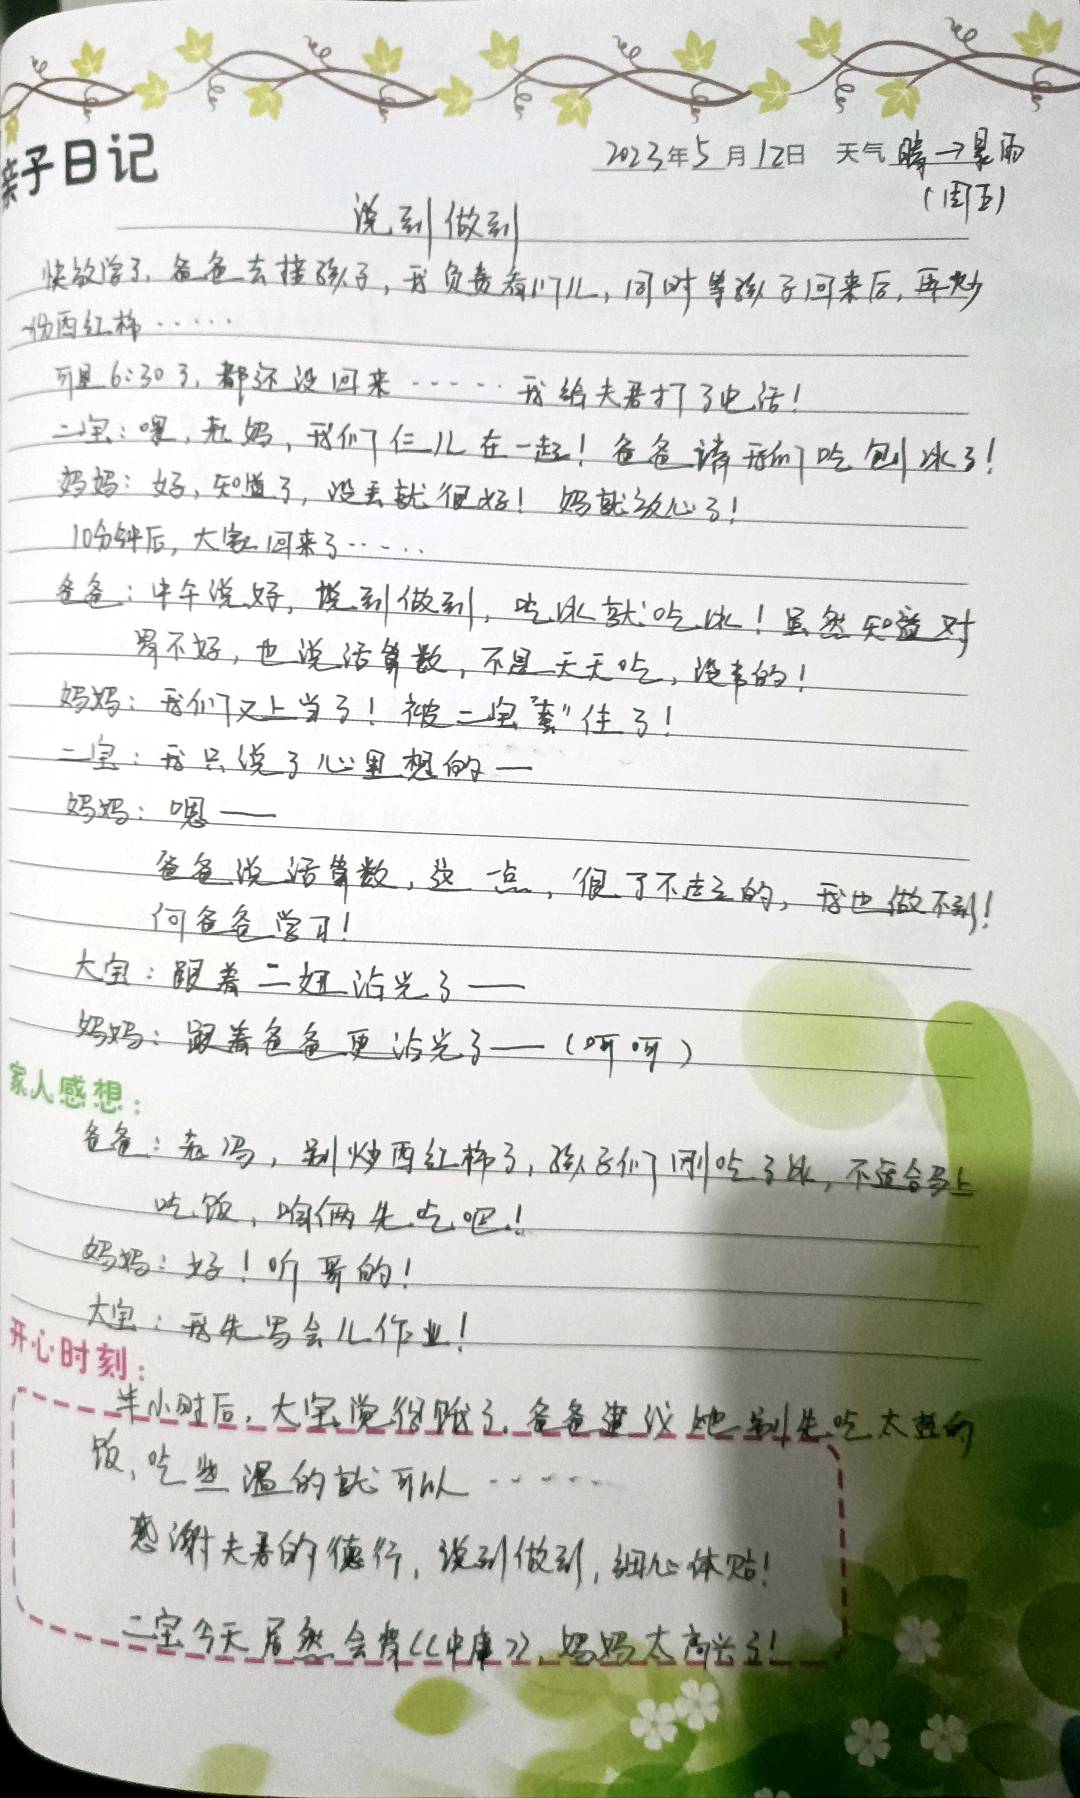 亲子日记
2023年5月12日 天气 晴→暴雨
(周五)
说到做到
快放学了,爸爸去接孩子,我负责看门儿,同时等孩子回来后,再炒
一份西红柿……
可是6:30了,都还没回来……我给夫君打了电话!
二宝:喂,老妈,我们仨儿在一起!爸爸请我们吃刨冰了!
妈妈:好,知道了,没丢就很好!妈就放心了!
10分钟后,大家回来了……
爸爸:中午说好,说到做到,吃冰就吃冰!虽然知道对
胃不好,也说话算数,不是天天吃,没事的!
妈妈:我们又上当了!被二宝“套”住了!
二宝:我只说了心里想的—
妈妈:嗯——
爸爸说话算数,这一点,很了不起的,我也做不到!
向爸爸学习!
大宝:跟着二妞沾光了——
妈妈:跟着爸爸更沾光了——(呵呵)
家人感想:
爸爸:老冯,别炒西红柿了,孩子们刚吃了冰,不适合马上
吃饭,咱俩先吃吧!
妈妈:好!听哥的!
大宝:我先写会儿作业!
开心时刻:
半小时后,大宝觉得饿了,爸爸建议她别先吃太热的
饭,吃些温的就可以……
感谢夫君的德行,说到做到,细心体贴!
二宝今天居然会背《中庸》,妈妈太高兴了!